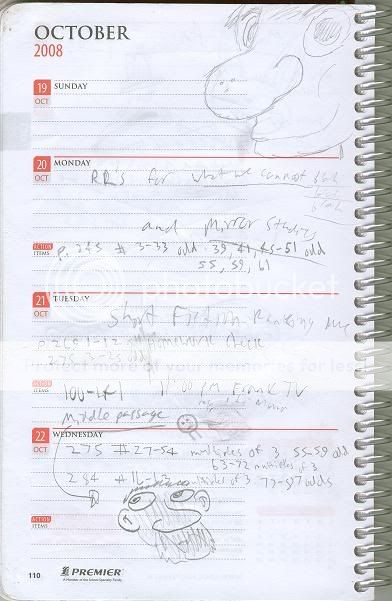 OCTOBER
2008
19 SUNDAY
OCT
20 MONDAY
OCT
RR's for what we cannot
and Mirror Studies
ACTION
ITEMS
p. 245 # 3-33 odd 39, 41, 45-51 odd
55, 59, 61
photobucket
21 TUESDAY
OCT
Short Fiction Ranking due
p. 269 1-12 Homework check
275 3-25 odd
Protect more of your memories for less!
ACTION
ITEMS
11:00 PM Frank TV
Middle passage
22 WEDNESDAY
OCT
275 #27-54 multiples of 3 55-59 odd
63-72 multiples of 3
284 of 3
ACTION
ITEMS
110
PREMIER
A Member of the School Specialty Family